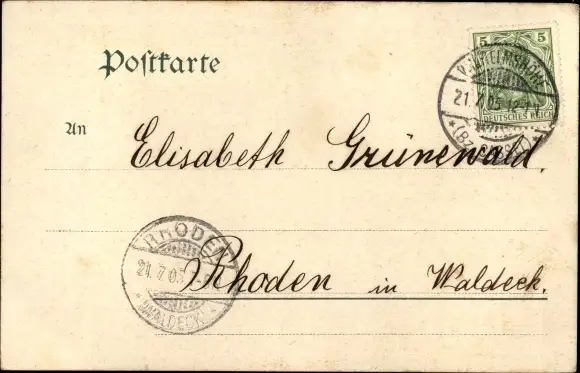 Postkarte
5 5
DEUTSCHES REICH
WILHELMSHÖHE
21.7.05.12-1
* (Bz. CASSEL) *
An
Elisabeth Grünewald.
RHODEN
21.7.05
* (WALDECK) *
Rhoden in Waldeck.